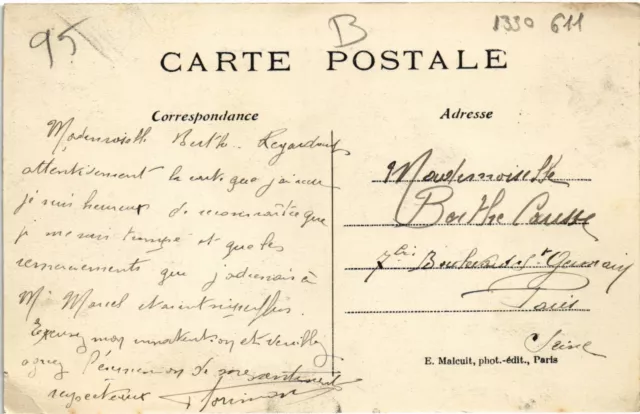 95
B
1330 611
CARTE POSTALE
Correspondance
Adresse
Mademoiselle Berthe Regardant
attentivement la carte que j'ai reçu
je suis heureux de reconnaître que
je me suis trompé et que les
remerciements que j'adressais à
Mr Marcel étaient superflus.
Excusez mon inattention et veuillez
agréez l'expression de mes sentiments
respectueux
Mademoiselle
Berthe
7bis Boulevard St Germain
Paris
Seine
E. Malcuit, phot.-édit., Paris